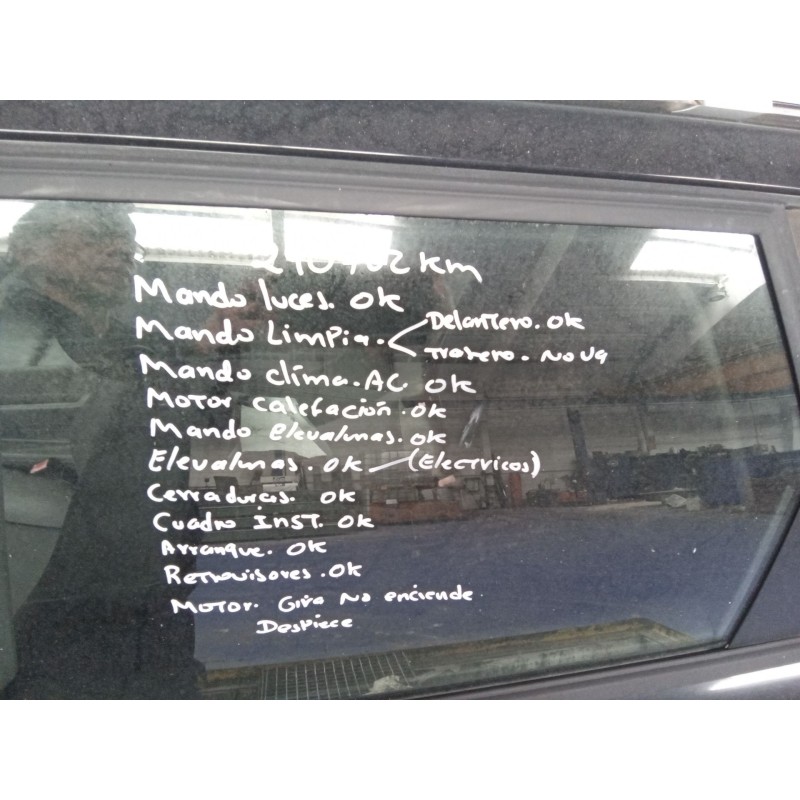 km
Mando luces. ok
Mando Limpia. Delantero. ok
Trasero. No va
Mando clima. AC ok
Motor calefacion. ok
Mando elevalunas. ok
Elevalunas. ok (Electricos)
Cerraduras. ok
Cuadro Inst. ok
Arranque. ok
Retrovisores. ok
Motor. Gira No enciende
Despiece